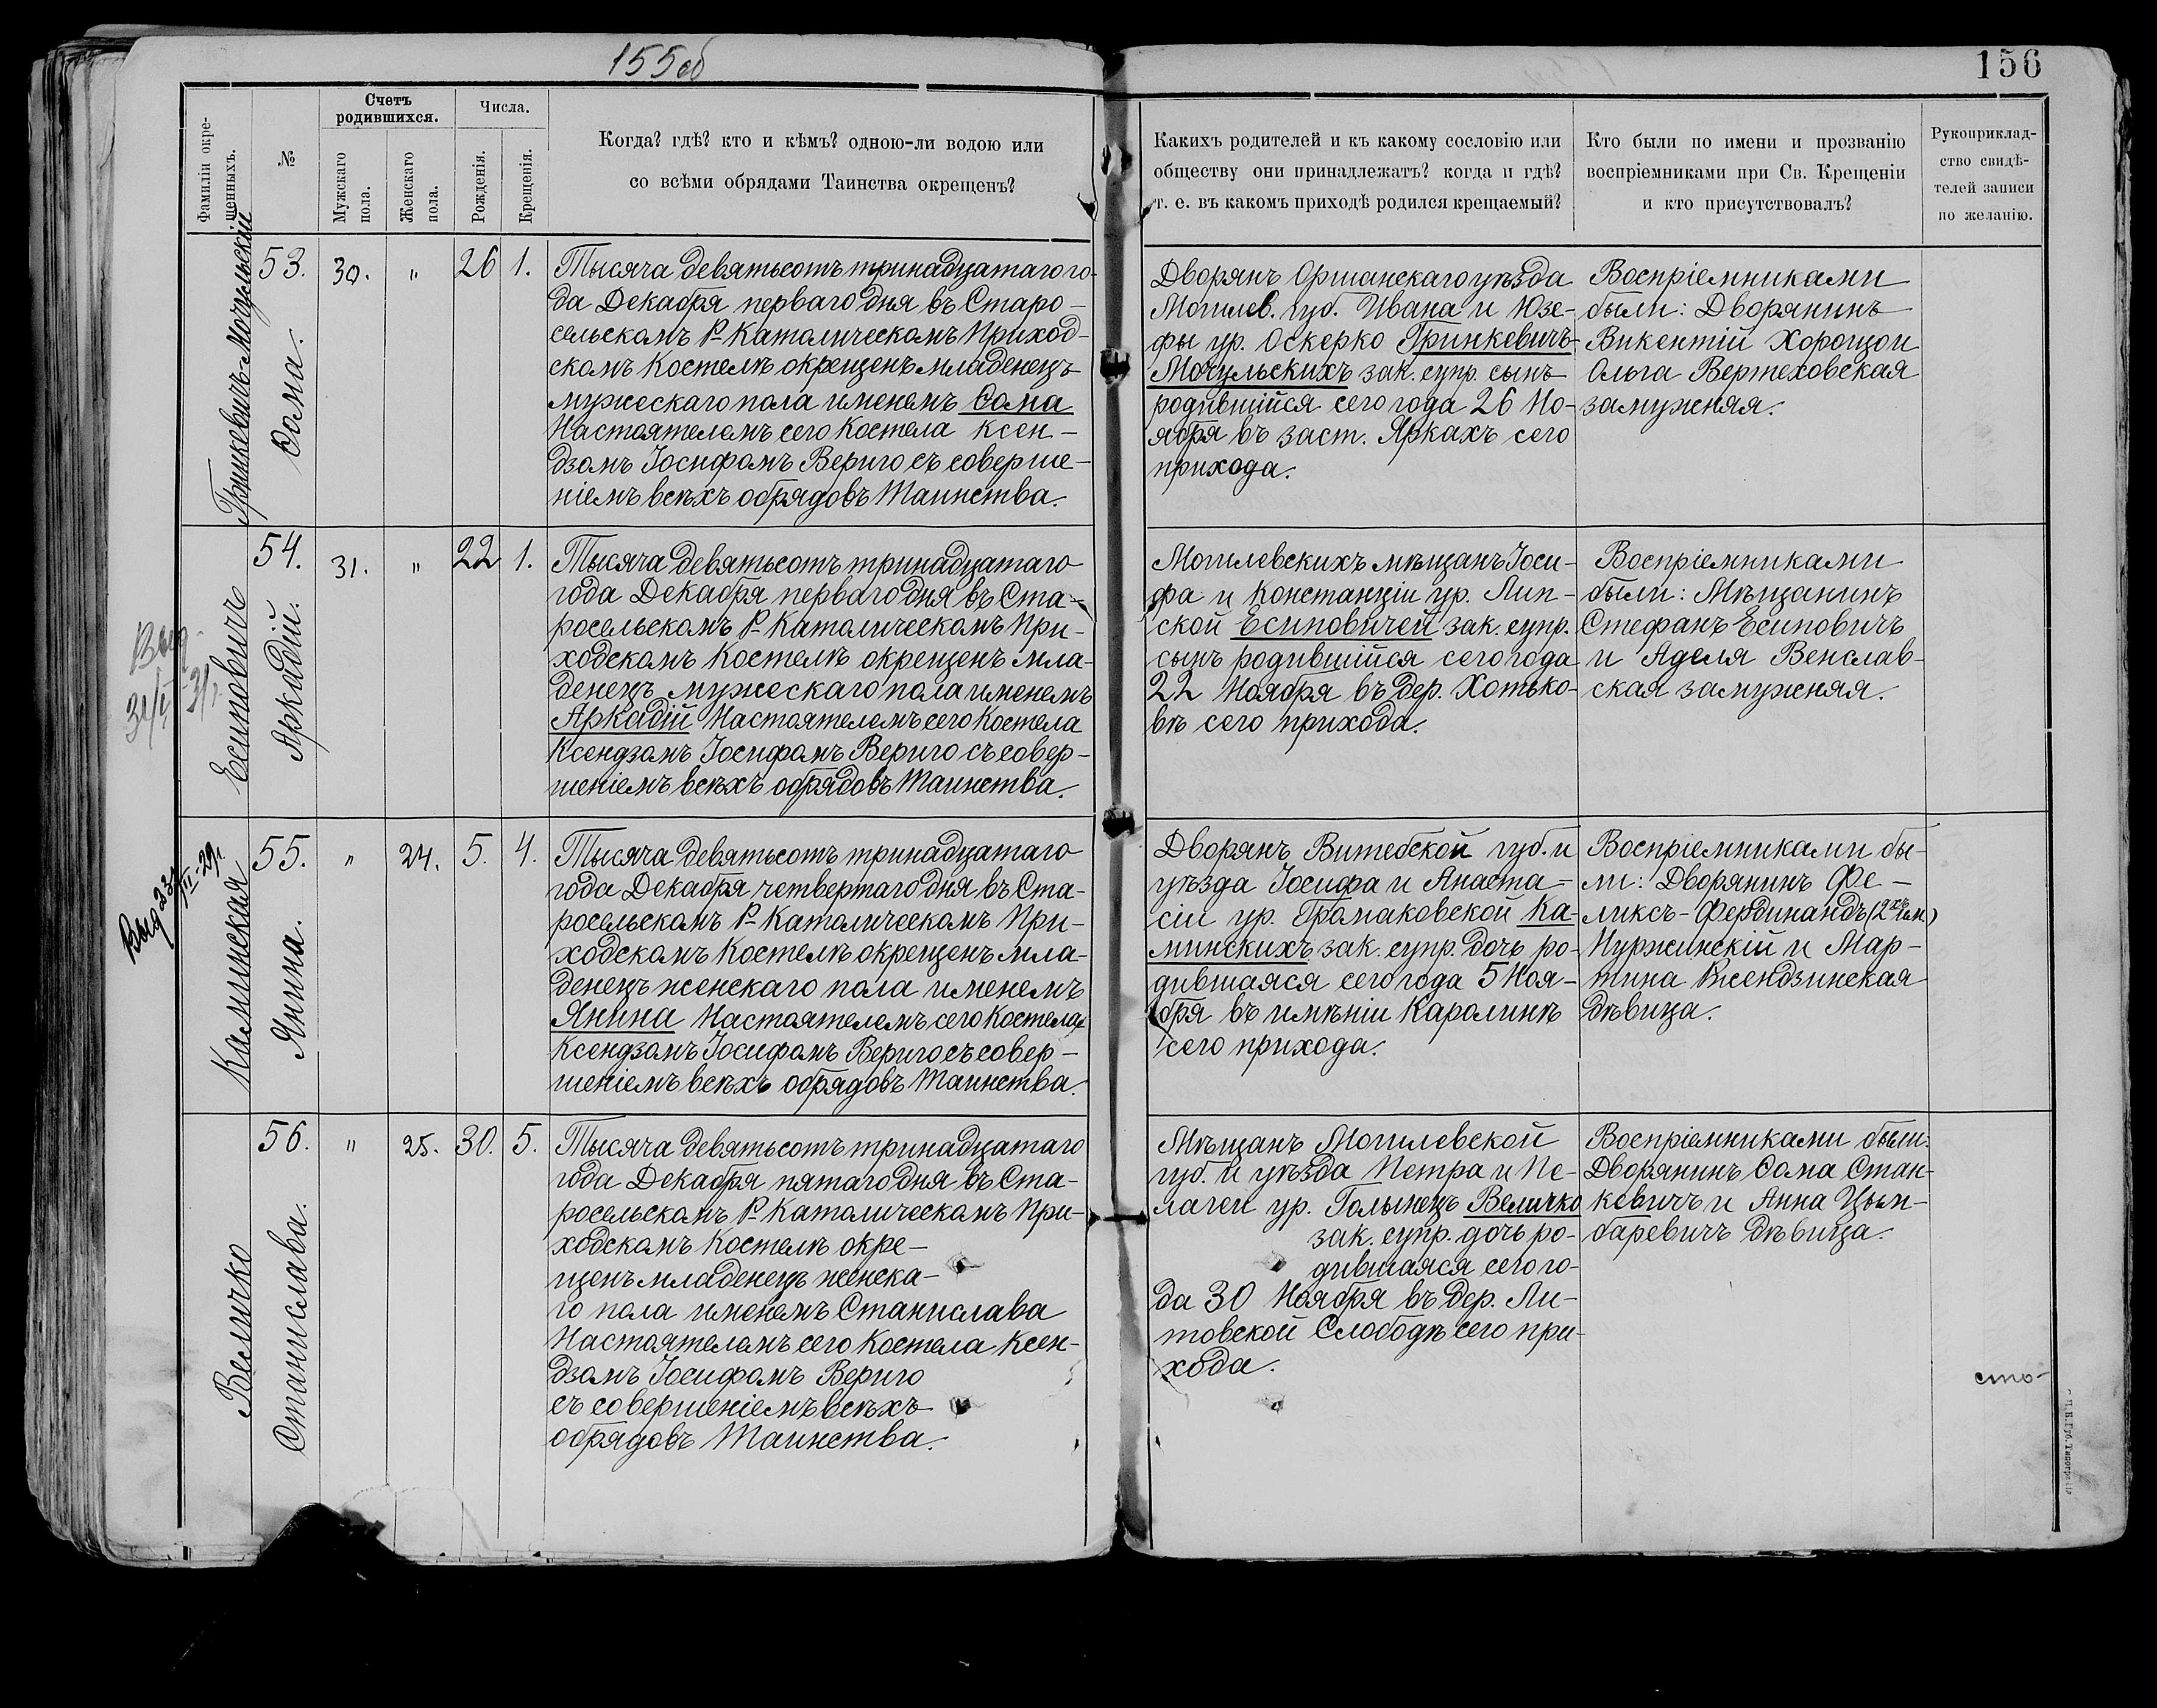 155 об
156
Фамиліи окре-
щенныхъ.
№
Счетъ
родившихся.
Мужскаго
пола.
Женскаго
пола.
Числа.
Рожденія.
Крещенія.
Когда? гдѣ? кто и кѣмъ? одною-ли водою или
со всѣми обрядами Таинства окрещенъ?
Какихъ родителей и къ какому сословію или
обществу они принадлежатъ? когда и гдѣ?
т. е. въ какомъ приходѣ родился крещаемый?
Кто были по имени и прозванію
воспріемниками при Св. Крещеніи
и кто присутствовалъ?
Рукоприклад-
ство свидѣ-
телей записи
по желанію.
Гринкевичъ-Мочульскій
Ѳома.
53.
30.
"
26
1.
Тысяча девятьсотъ тринадцатаго го-
да Декабря перваго дня въ Старо-
сельскомъ Р-Католическомъ Приход-
скомъ Костелѣ окрещенъ младенецъ
мужескаго пола именемъ Ѳома
Настоятелемъ сего Костела Ксен-
дзомъ Іосифомъ Вериго съ соверше-
ніемъ всѣхъ обрядовъ Таинства.
Дворянъ Оршанскаго уѣзда
Могилев. губ. Ивана и Юзе-
фы ур. Оскерко Гринкевичъ-
Мочульскихъ зак. супр. сынъ
родившійся сего года 26 Но-
ября въ заст. Яркахъ сего
прихода.
Воспріемниками
были: Дворянинъ
Викентій Хорощо и
Ольга Вертеховская
замужняя.
Есиповичъ
Аркадій.
54.
31.
"
22
1.
Тысяча девятьсотъ тринадцатаго
года Декабря перваго дня въ Ста-
росельскомъ Р-Католическомъ При-
ходскомъ Костелѣ окрещенъ мла-
денецъ мужескаго пола именемъ
Аркадій Настоятелемъ сего Костела
Ксендзомъ Іосифомъ Вериго съ совер-
шеніемъ всѣхъ обрядовъ Таинства.
Могилевскихъ мѣщанъ Іоси-
фа и Констанціи ур. Лип-
ской Есиповичей зак. супр.
сынъ родившійся сего года
22 Ноября въ дер. Хотько-
вѣ сего прихода.
Воспріемниками
были: Мѣщанинъ
Стефанъ Есиповичъ
и Аделя Венслав-
ская замужняя.
Выд
Выд 23/II-29г.
Каминская
Янина.
55.
"
24.
5.
4.
Тысяча девятьсотъ тринадцатаго
года Декабря четвертаго дня въ Ста-
росельскомъ Р-Католическомъ При-
ходскомъ Костелѣ окрещенъ мла-
денецъ женскаго пола именемъ
Янина Настоятелемъ сего Костела
Ксендзомъ Іосифомъ Вериго съ совер-
шеніемъ всѣхъ обрядовъ Таинства.
Дворянъ Витебской губ. и
уѣзда Іосифа и Анаста-
сіи ур. Громаковской Ка-
минскихъ зак. супр. дочь ро-
дившаяся сего года 5 Ноя-
бря въ имѣніи Каролинѣ
сего прихода.
Воспріемниками бы-
ли: Дворянинъ Фе-
ликсъ-Фердинандъ (2хъ им.)
Нуржинскій и Мар-
тина Ксендзинская
дѣвица.
Величко
Станислава.
56.
"
25.
30.
5.
Тысяча девятьсотъ тринадцатаго
года Декабря пятаго дня въ Ста-
росельскомъ Р-Католическомъ При-
ходскомъ Костелѣ окре-
щенъ младенецъ женска-
го пола именемъ Станислава
Настоятелемъ сего Костела Ксен-
дзомъ Іосифомъ Вериго
съ совершеніемъ всѣхъ
обрядовъ Таинства.
Мѣщанъ Могилевской
губ. и уѣзда Петра и Пе-
лагеи ур. Голынецъ Величко
зак. супр. дочь ро-
дившаяся сего го-
да 30 Ноября въ дер. Ли-
товской Слободѣ сего при-
хода.
Воспріемниками были:
Дворянинъ Ѳома Стан-
кевичъ и Анна Цым-
баревичъ дѣвица.
сто-